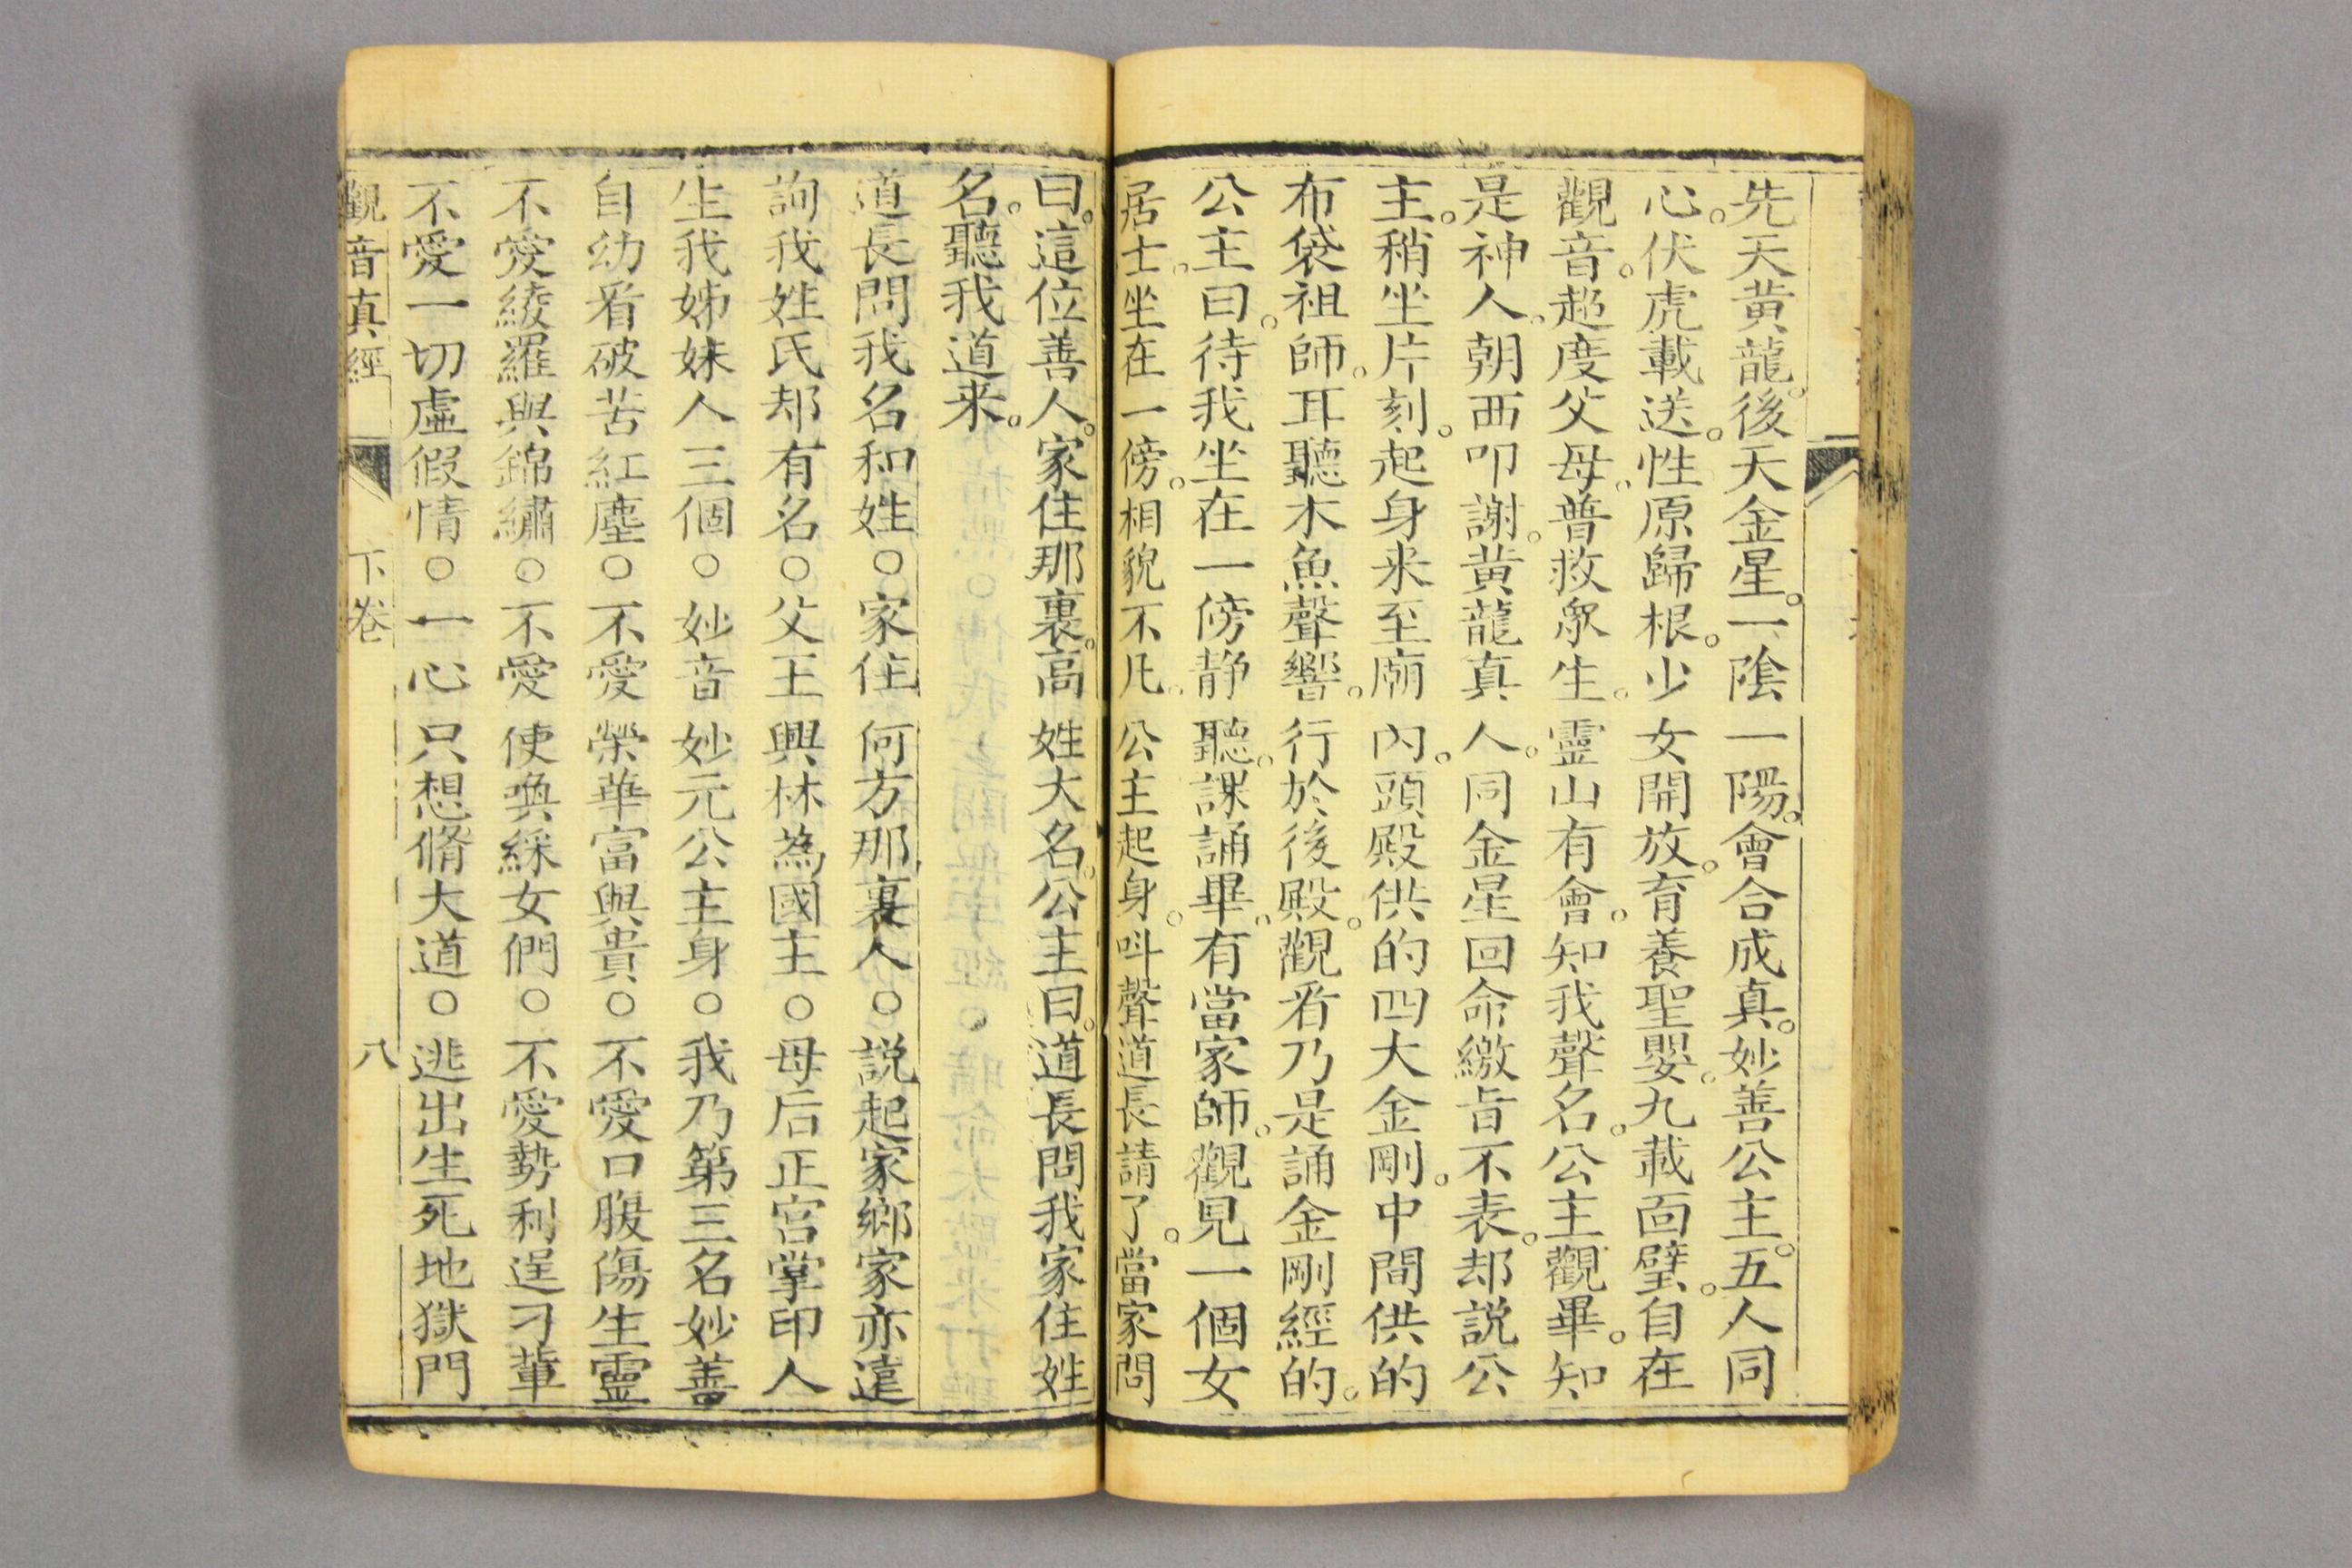 先天黄龍。後天金星。一陰一陽。會合成真。妙善公主。五人同
心。伏虎載送。性原歸根。少女開放。育養聖嬰。九載面壁。自在
觀音。超度父母。普救衆生。靈山有會。知我聲名。公主觀畢。知
是神人。朝西叩謝。黄龍真人。同金星回命繳旨不表。却説公
主。稍坐片刻。起身来至廟内。頭殿供的四大金剛。中間供的
布袋祖師。耳聽木魚聲響。行於後殿。觀看乃是誦金剛經的。
公主曰。待我坐在一傍静聽。課誦畢。有當家師。觀見一個女
居士。坐在一傍。相貌不凡。公主起身。呌聲道長請了。當家問
曰。這位善人。家住那裏。高姓大名。公主曰。道長問我家住姓
名。聽我道来。
道長問我名和姓○家住何方那裏人○説起家鄉家亦遠
詢我姓氏却有名○父王興林為國主○母后正宫掌印人
生我姊妹人三個○妙音妙元公主身○我乃第三名妙善
自幼看破苦紅塵○不愛榮華富與貴○不愛口腹傷生靈
不愛綾羅與錦繡○不愛使喚綵女們○不愛勢利逞刁輩
不愛一切虛假情○一心只想脩大道○逃出生死地獄門
觀音真經 下卷 八